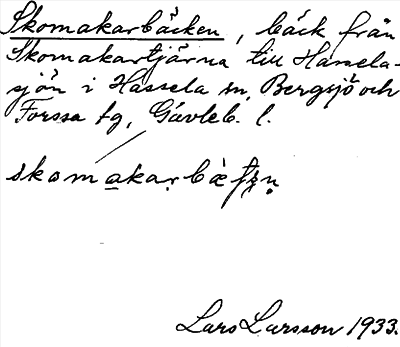 Skomakarbäcken, bäck från
Skomakartjärna till Hassela-
sjön i Hassela sn, Bergsjö och
Forssa tg, Gävleb. l.
skomakarbètʃən
Lars Larsson 1933.